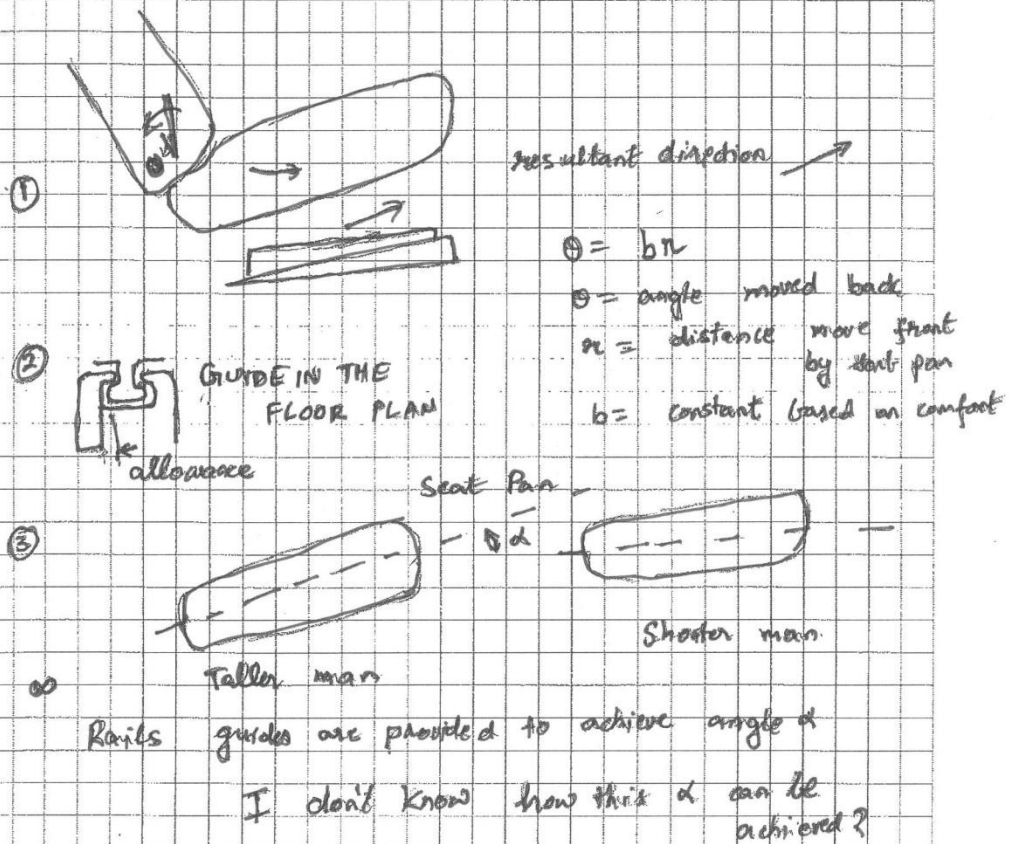 ①
θ
resultant direction
θ = bx
θ = angle moved back
x = distance move front
by seat pan
b = constant based on comfort
②
GUIDE IN THE
FLOOR PLAN
allowance
Seat Pan
③
α
Taller man
Shorter man
∞
Rails guides are provided to achieve angle α
I don't know how this α can be
achieved?